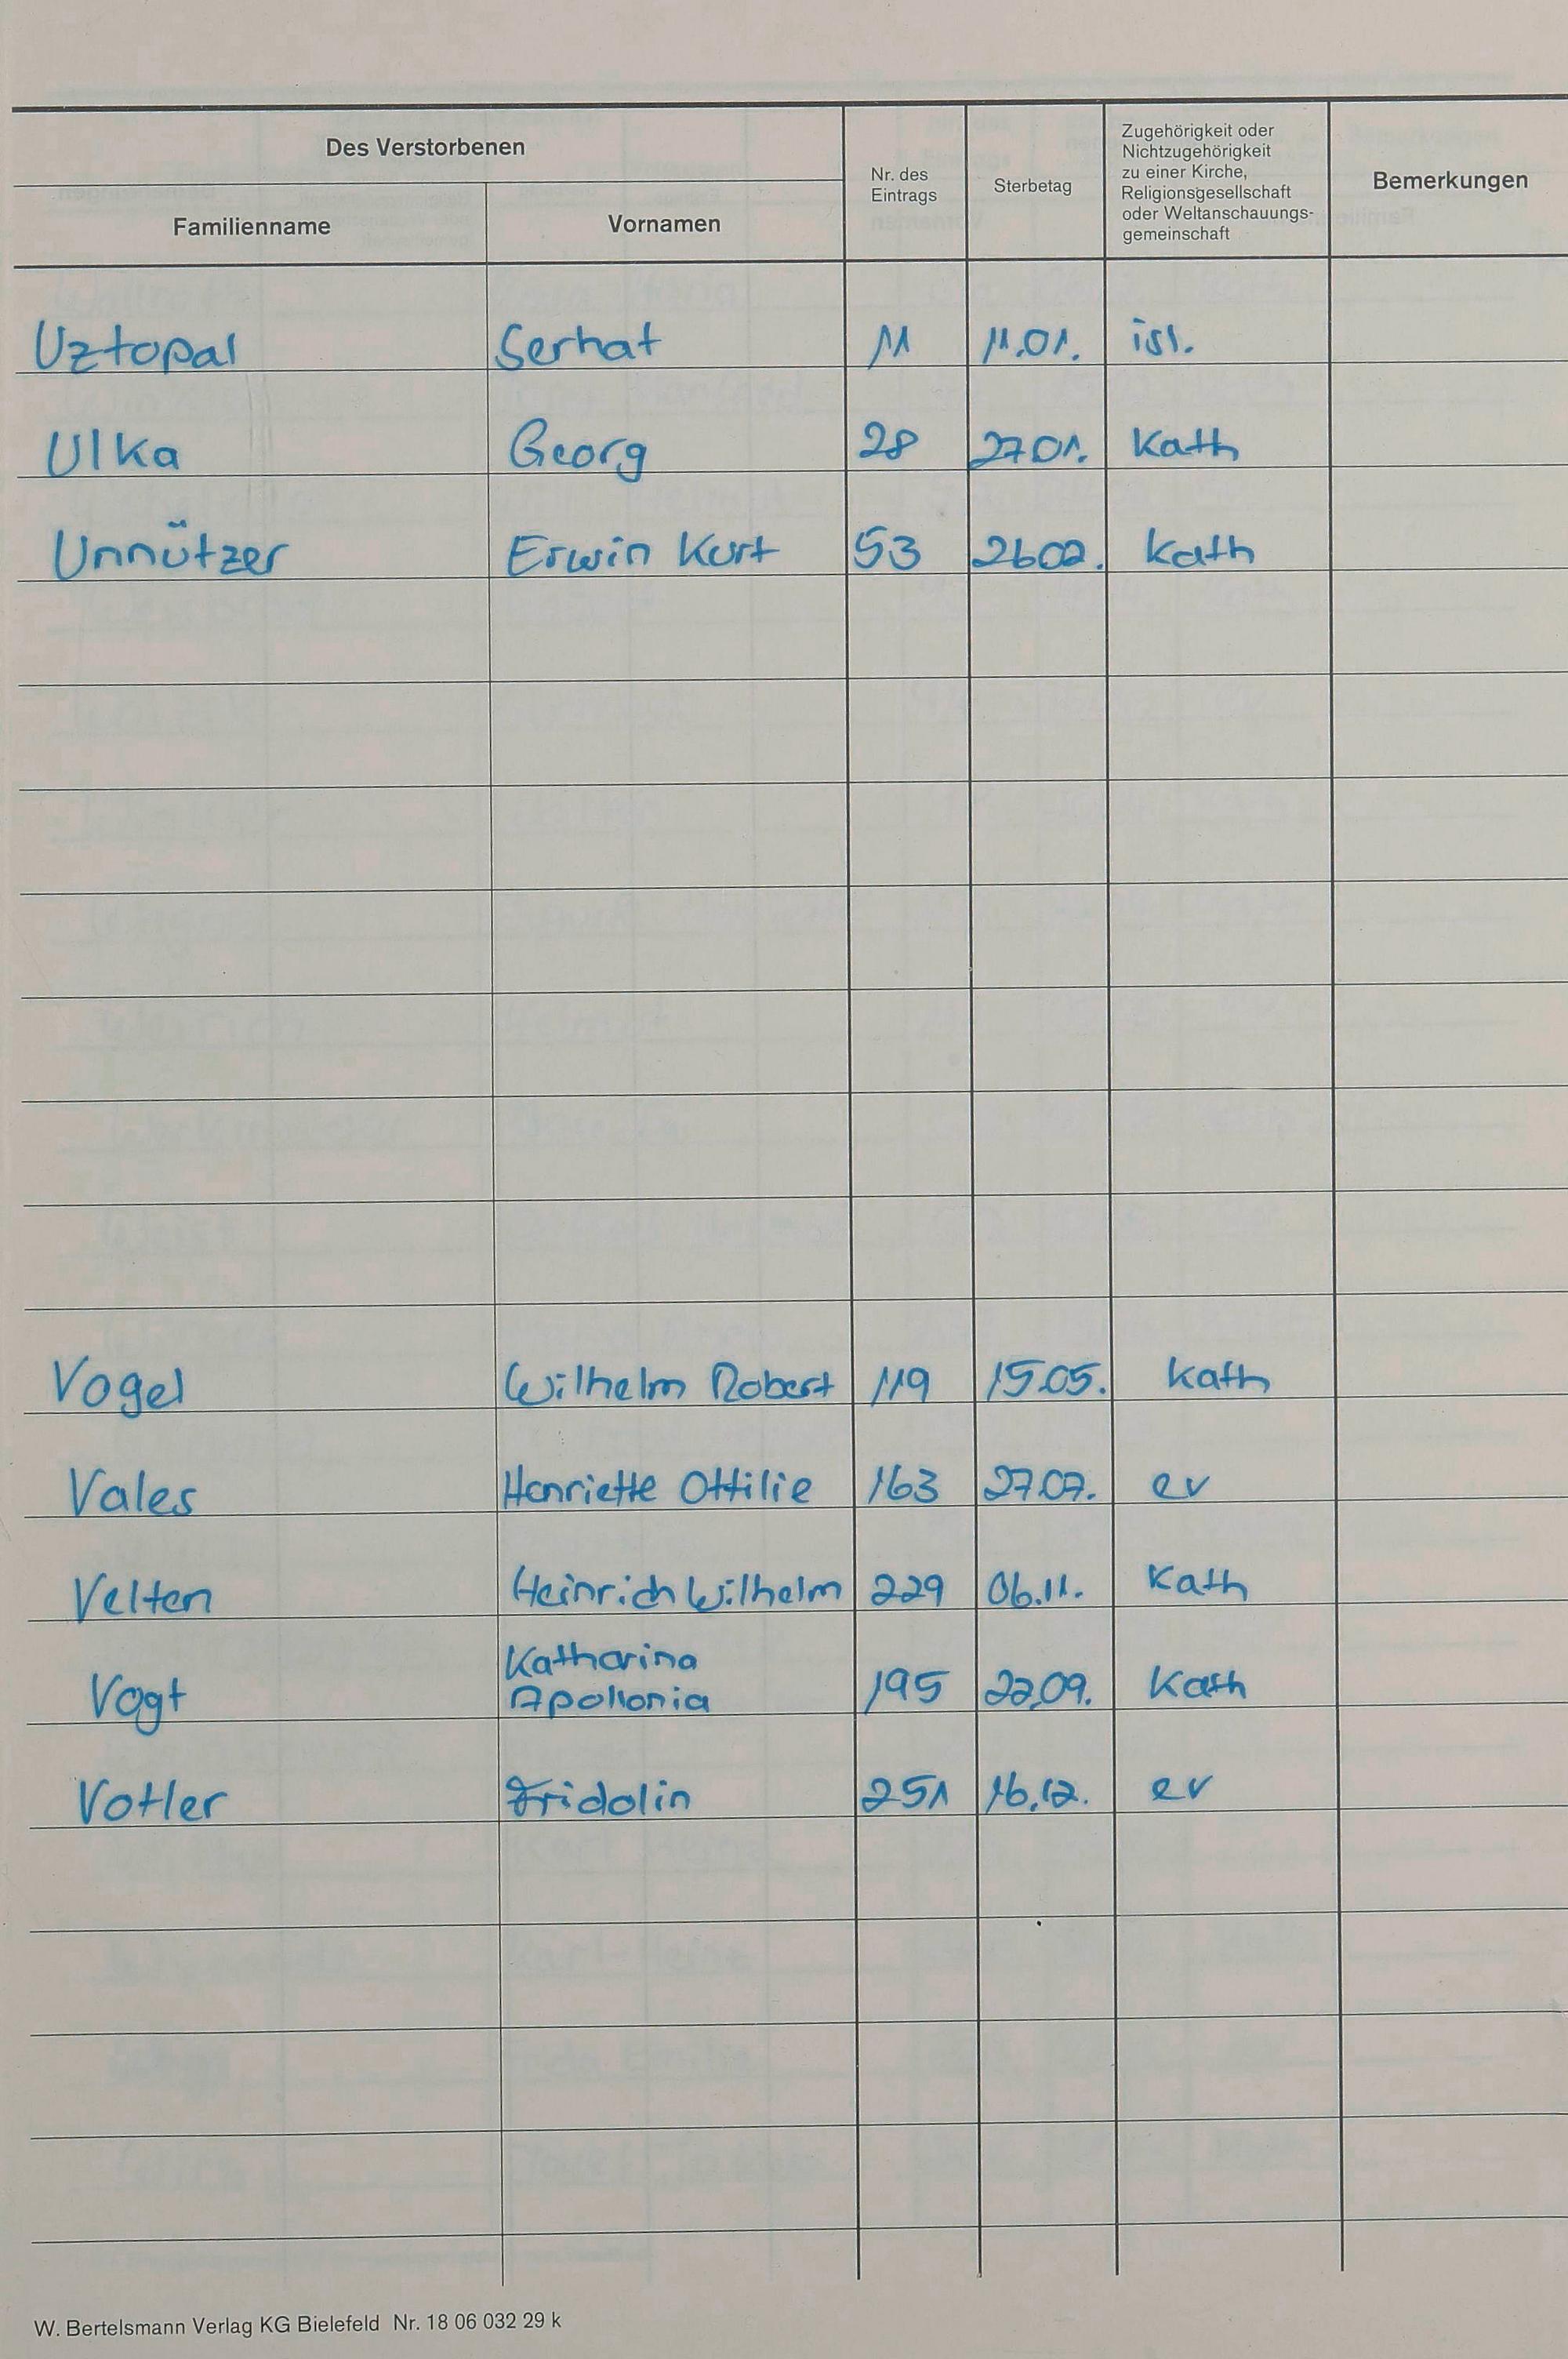 Des Verstorbenen
Familienname Vornamen Nr. des Eintrags Sterbetag Zugehörigkeit oder Nichtzugehörigkeit zu einer Kirche, Religionsgesellschaft oder Weltanschauungs-gemeinschaft Bemerkungen
Uztopal Serhat 11 11.01. isl.
Ulka Georg 28 27 01. Kath
Unnützer Erwin Kurt 53 26 02. Kath
Vogel Wilhelm Robert 119 15.05. Kath
Vales Henriette Ottilie 163 27.07. ev
Velten Heinrich Wilhelm 229 06.11. Kath
Vogt Katharina Apollonia 195 22.09. Kath
Votler Fridolin 251 16.12. ev
W. Bertelsmann Verlag KG Bielefeld Nr. 18 06 032 29 k